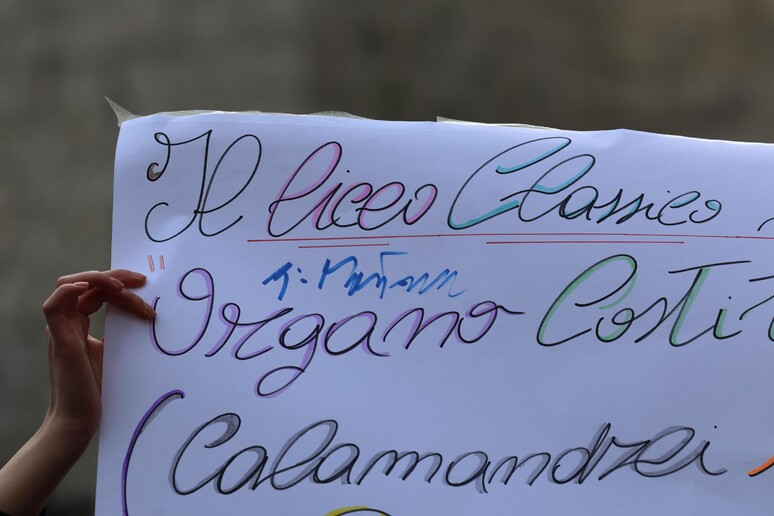 Il liceo Classico
"Organo Costit
(Calamandrei